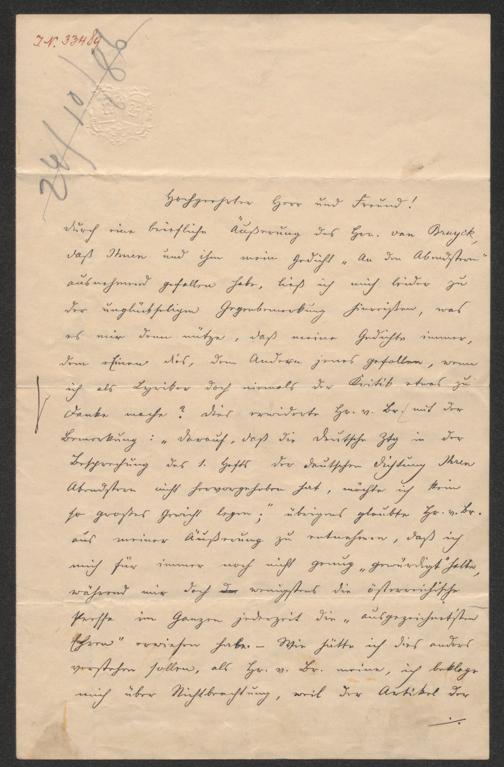 I.N. 33489
24/10/86
Hochgeehrter Herr und Freund!
Durch eine briefliche Äußerung des Hrn. van Bruyck,
daß Ihnen und ihm mein Gedicht „An den Abendstern"
ausnehmend gefallen habe, ließ ich mich leider zu
der unglückseligen Gegenbemerkung hinreißen, was
es mir denn nütze, daß meine Gedichte immer,
dem Einen dies, dem Andern jenes gefallen, wenn
ich als Lyriker doch niemals der Kritik etwas zu
Danke mache? Dies erwiderte Hr. v. Br. mit der
Bemerkung: „Darauf, daß die deutsche Ztg in der
Besprechung des 1. Hefts der deutschen Dichtung Ihren
Abendstern nicht hervorgehoben hat, möchte ich kein
so großes Gewicht legen;" übrigens glaubte Hr. v. Br.
aus meiner Äußerung zu entnehmen, daß ich
mich für immer noch nicht genug „gewürdigt" halte,
während mir doch wenigstens die österreichische
Presse im Ganzen jederzeit die „ausgezeichnetsten
Ehren" erwiesen habe. – Wie hätte ich dies anders
verstehen sollen, als Hr. v. Br. meine, ich beklage
mich über Nichtbeachtung, weil der Artikel der